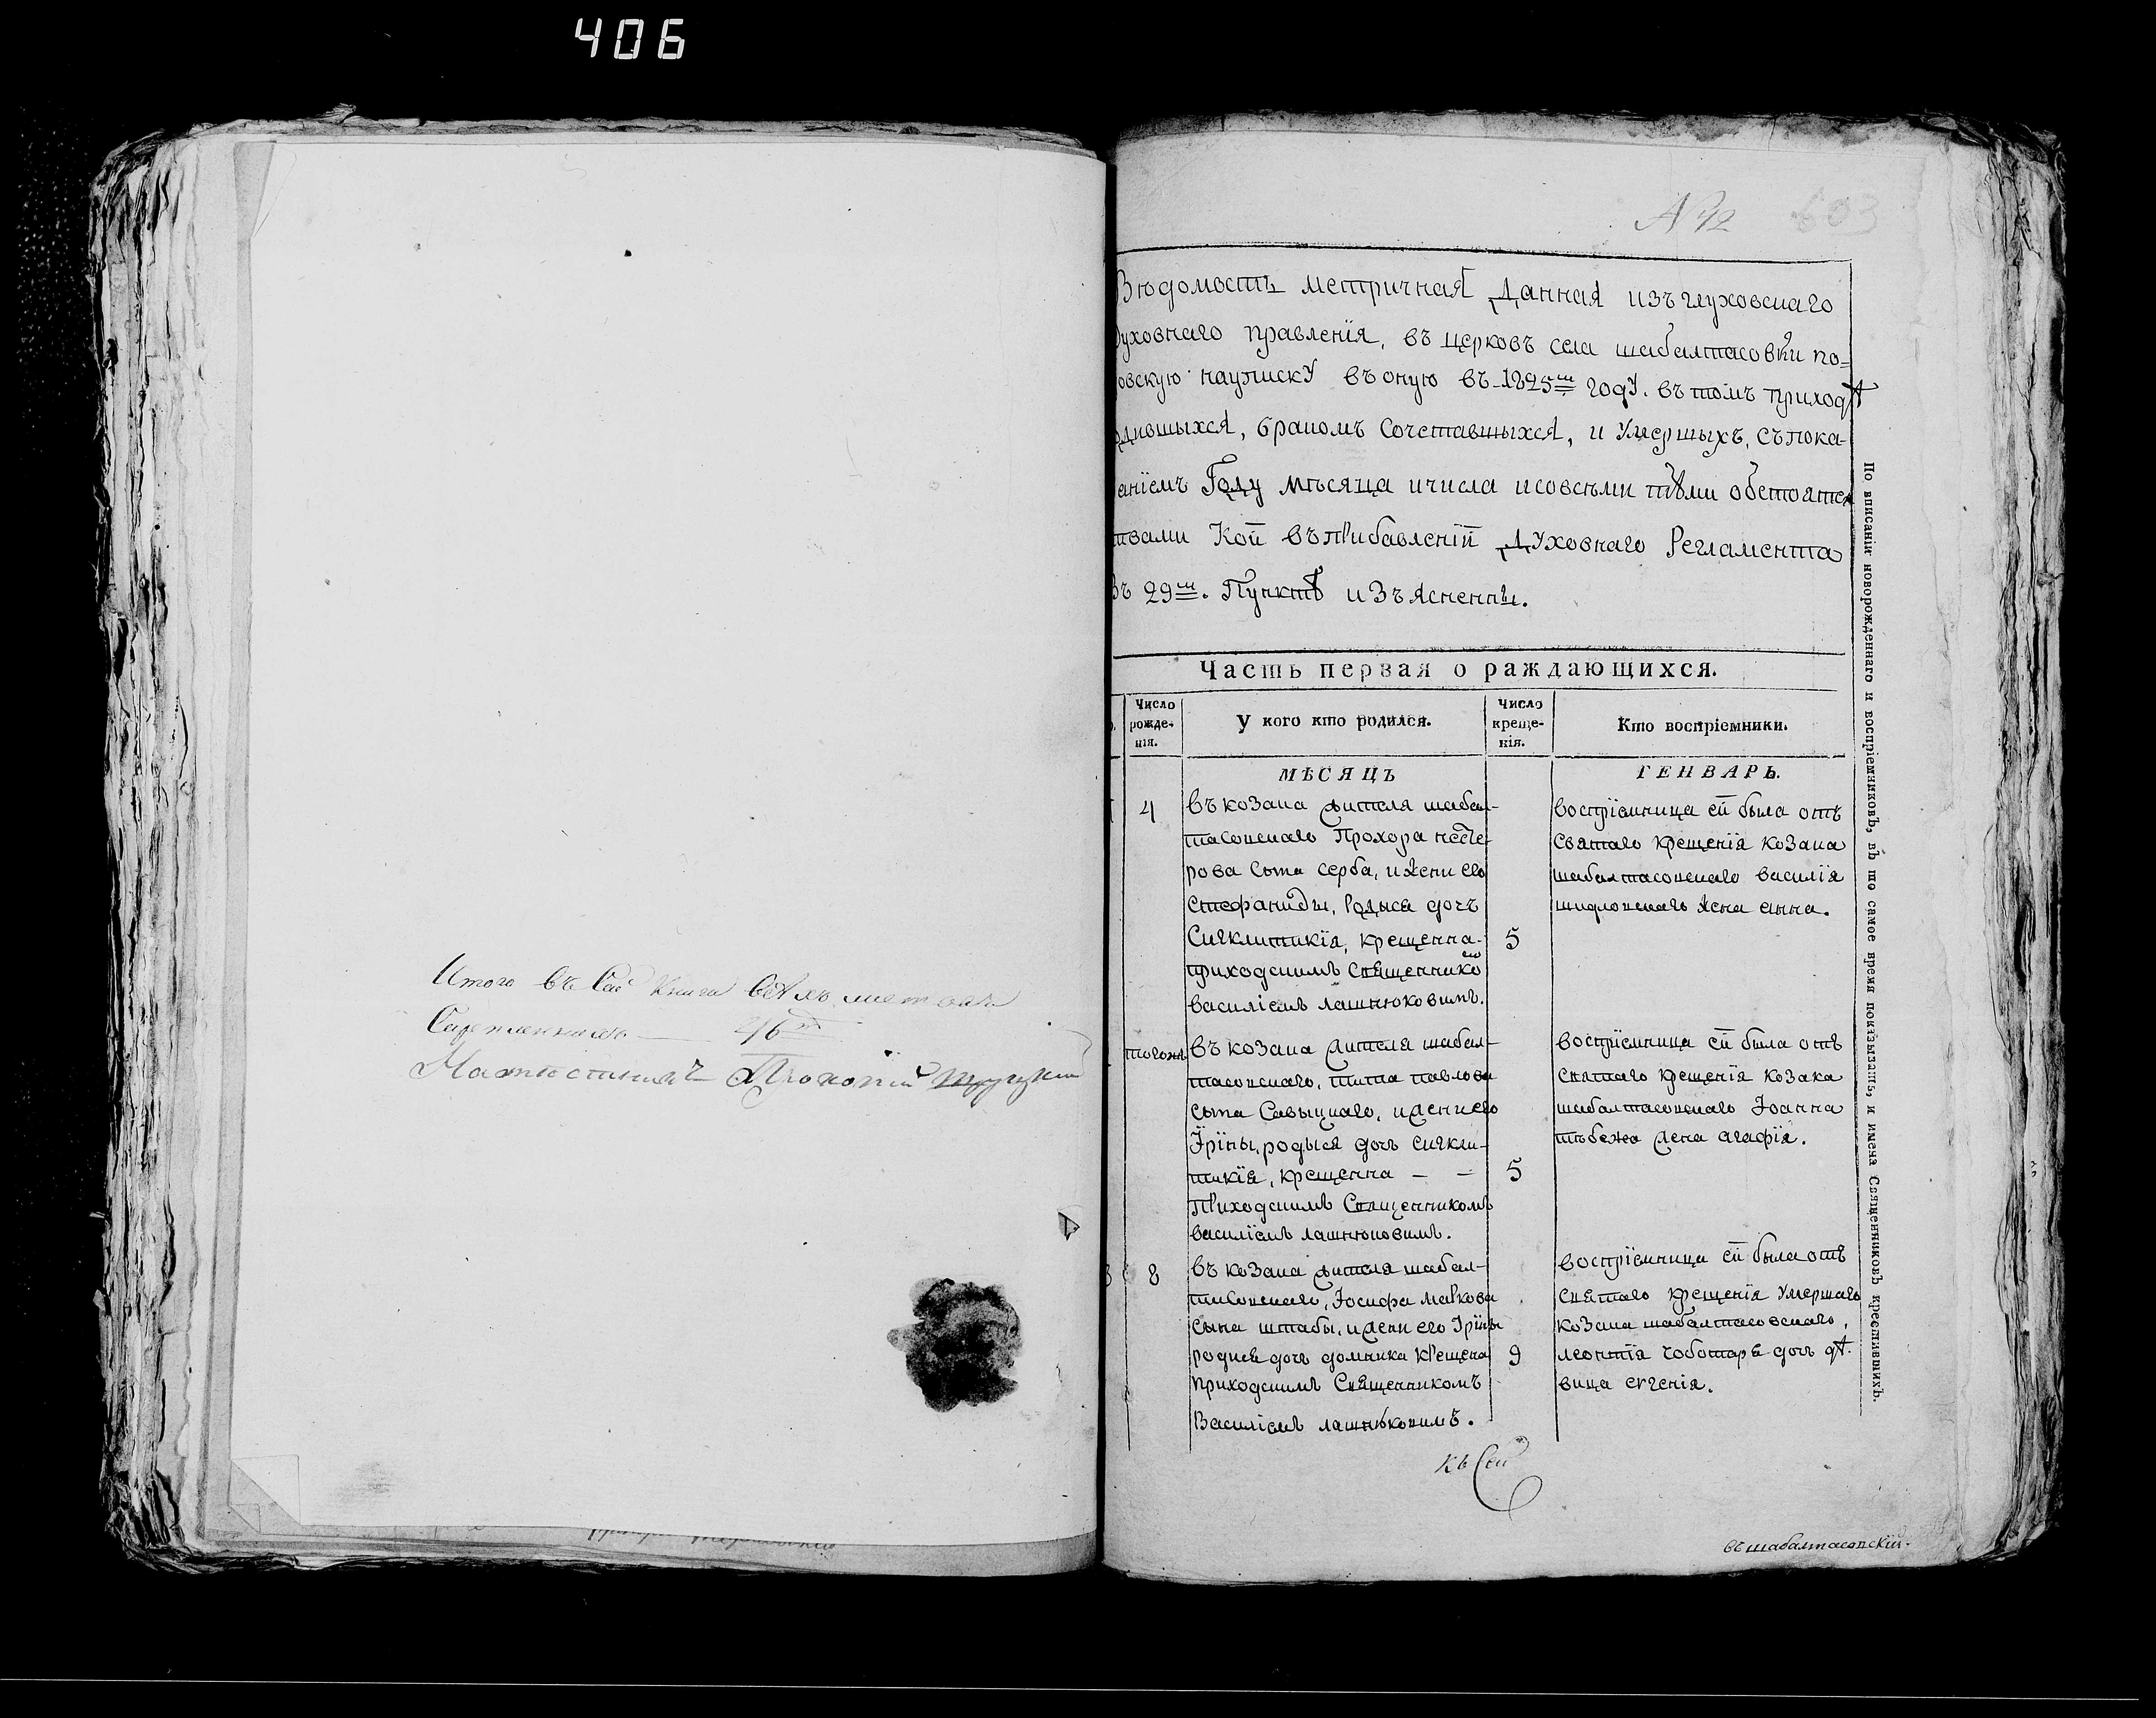 406
Итого въ сей книги всѣхъ листовъ
Скрепленныхъ — 46
Намѣстникъ Прокопій
№ 42 603
Вѣдомость метричная данная изъ глуховскаго
духовнаго правленїя, въ церковъ села шабалтасовки по-
овскую наупискУ въ оную въ 1825м годУ. въ томъ приходѣ
одившыхся, бракомъ Сочетавшыхся, и Умершыхъ, съ пока-
анїемъ Году мѣсяца и числа и совсѣми тѣми обстоятел
твами Кои въ прибавленїи дУховнаго Регламента
Въ 29м. Пунктѣ изъяснены.
Часть первая о раждающихся.
Число рожде- нія.
У кого кто родился.
Число креще- нія.
Кто воспріемники.
МѢСЯЦЪ
ГЕНВАРЬ.
4 въ козака жителя шабал-
тасовскаго Прохора несте-
рова сына серба, и жени его
Стефаниды, Родыся дочъ
Сигклитикїя, крещенна 5
приходскимъ Священнико
василїемъ лашнюковимъ.
воспрїемница ей была отъ
Святаго крещенїя козака
шабалтасовскаго василїя
шидловскаго жена анна.
тогожъ въ козака жителя шабал-
тасовскаго, тита павлова
сына Савыцкаго, и жени его
Їрїны, родыся дочъ сигкли-
тикїя, крещенна — — 5
Приходскимъ Священникомъ
василїемъ лашнюковимъ.
воспрїемница ей была отъ
святаго крещенїя козака
шабалтасовскаго Іоанна
жена агафїя.
8 въ козака жителя шабал-
тасовскаго, Іосифа маркова
сына штабы, и жени его Їрїны
родися дочъ домника крещена 9
приходскимъ Священникомъ
Василїемъ лашнюковимъ.
воспрїемница ей была отъ
святаго крещенїя умершаго
козака шабалтасовскаго,
леонтїя чоботаря дочъ дѣ-
вица евгенїя.
къ сей
въ шабалтасовскїй.
По вписаніи новорожденнаго и воспріемниковъ, въ то самое время показывать, и имена Священниковъ крестившихъ.